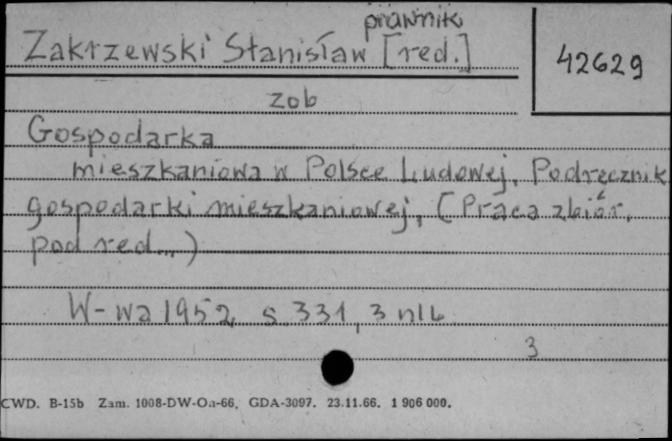 prawnik
Zakrzewski Stanisław [red.]
42629
zob
Gospodarka
mieszkaniowa w Polsce Ludowej. Podręcznik
gospodarki mieszkaniowej. (Praca zbiór.
pod red...)
W-wa 1952 s. 331, 3 nlb
3
CWD. B-15b Zam. 1008-DW-Oa-66. GDA-3097. 23.11.66. 1 906 000.